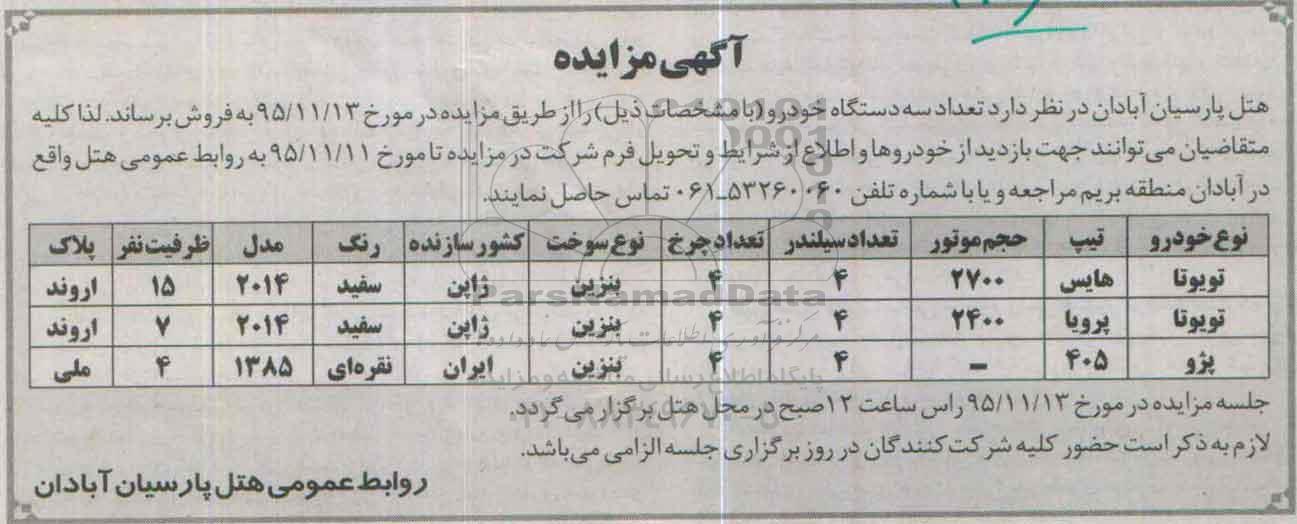 آگهی مزایده
هتل پارسیان آبادان در نظر دارد تعداد سه دستگاه خودرو (با مشخصات ذیل) را از طریق مزایده در مورخ ۹۵/۱۱/۱۳ به فروش برساند. لذا کلیه
متقاضیان می‌توانند جهت بازدید از خودروها و اطلاع از شرایط و تحویل فرم شرکت در مزایده تا مورخ ۹۵/۱۱/۱۱ به روابط عمومی هتل واقع
در آبادان منطقه بریم مراجعه و یا با شماره تلفن ۵۳۲۶۰۰۶۰-۰۶۱ تماس حاصل نمایند.
نوع خودرو تیپ حجم موتور تعداد سیلندر تعداد چرخ نوع سوخت کشور سازنده رنگ مدل ظرفیت نفر پلاک
تویوتا هایس ۲۷۰۰ ۴ ۴ بنزین ژاپن سفید ۲۰۱۴ ۱۵ اروند
تویوتا پرویا ۲۴۰۰ ۴ ۴ بنزین ژاپن سفید ۲۰۱۴ ۷ اروند
پژو ۴۰۵ – ۴ ۴ بنزین ایران نقره‌ای ۱۳۸۵ ۴ ملی
جلسه مزایده در مورخ ۹۵/۱۱/۱۳ راس ساعت ۱۲ صبح در محل هتل برگزار می گردد.
لازم به ذکر است حضور کلیه شرکت کنندگان در روز برگزاری جلسه الزامی می‌باشد.
روابط عمومی هتل پارسیان آبادان
ParsNamadData